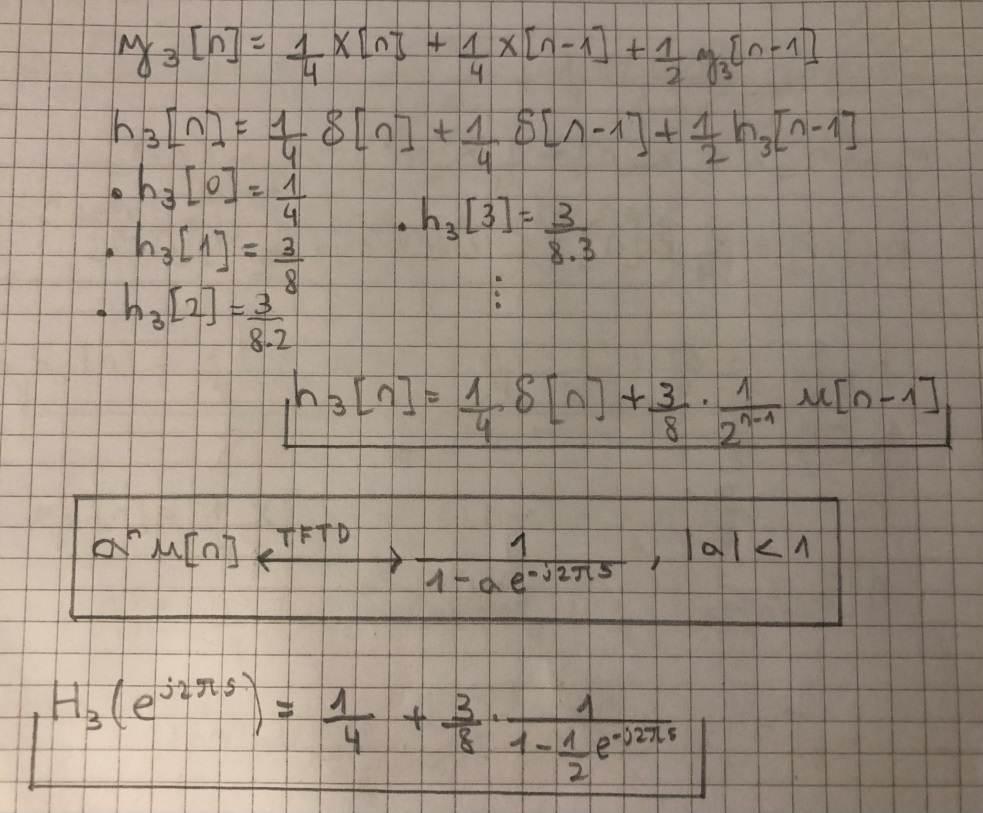 y₃[n] = 1/4 x[n] + 1/4 x[n-1] + 1/2 y₃[n-1]
h₃[n] = 1/4 δ[n] + 1/4 δ[n-1] + 1/2 h₃[n-1]
• h₃[0] = 1/4
• h₃[1] = 3/8
• h₃[2] = 3/(8.2)
• h₃[3] = 3/(8.3)
⋮
h₃[n] = 1/4 δ[n] + 3/8 · 1/2ⁿ⁻¹ u[n-1]
aⁿ u[n] <—TFTD—> 1/(1 - a e^(-j2πs)) , |a| < 1
H₃(e^(j2πs)) = 1/4 + 3/8 · 1/(1 - 1/2 e^(-j2πs))